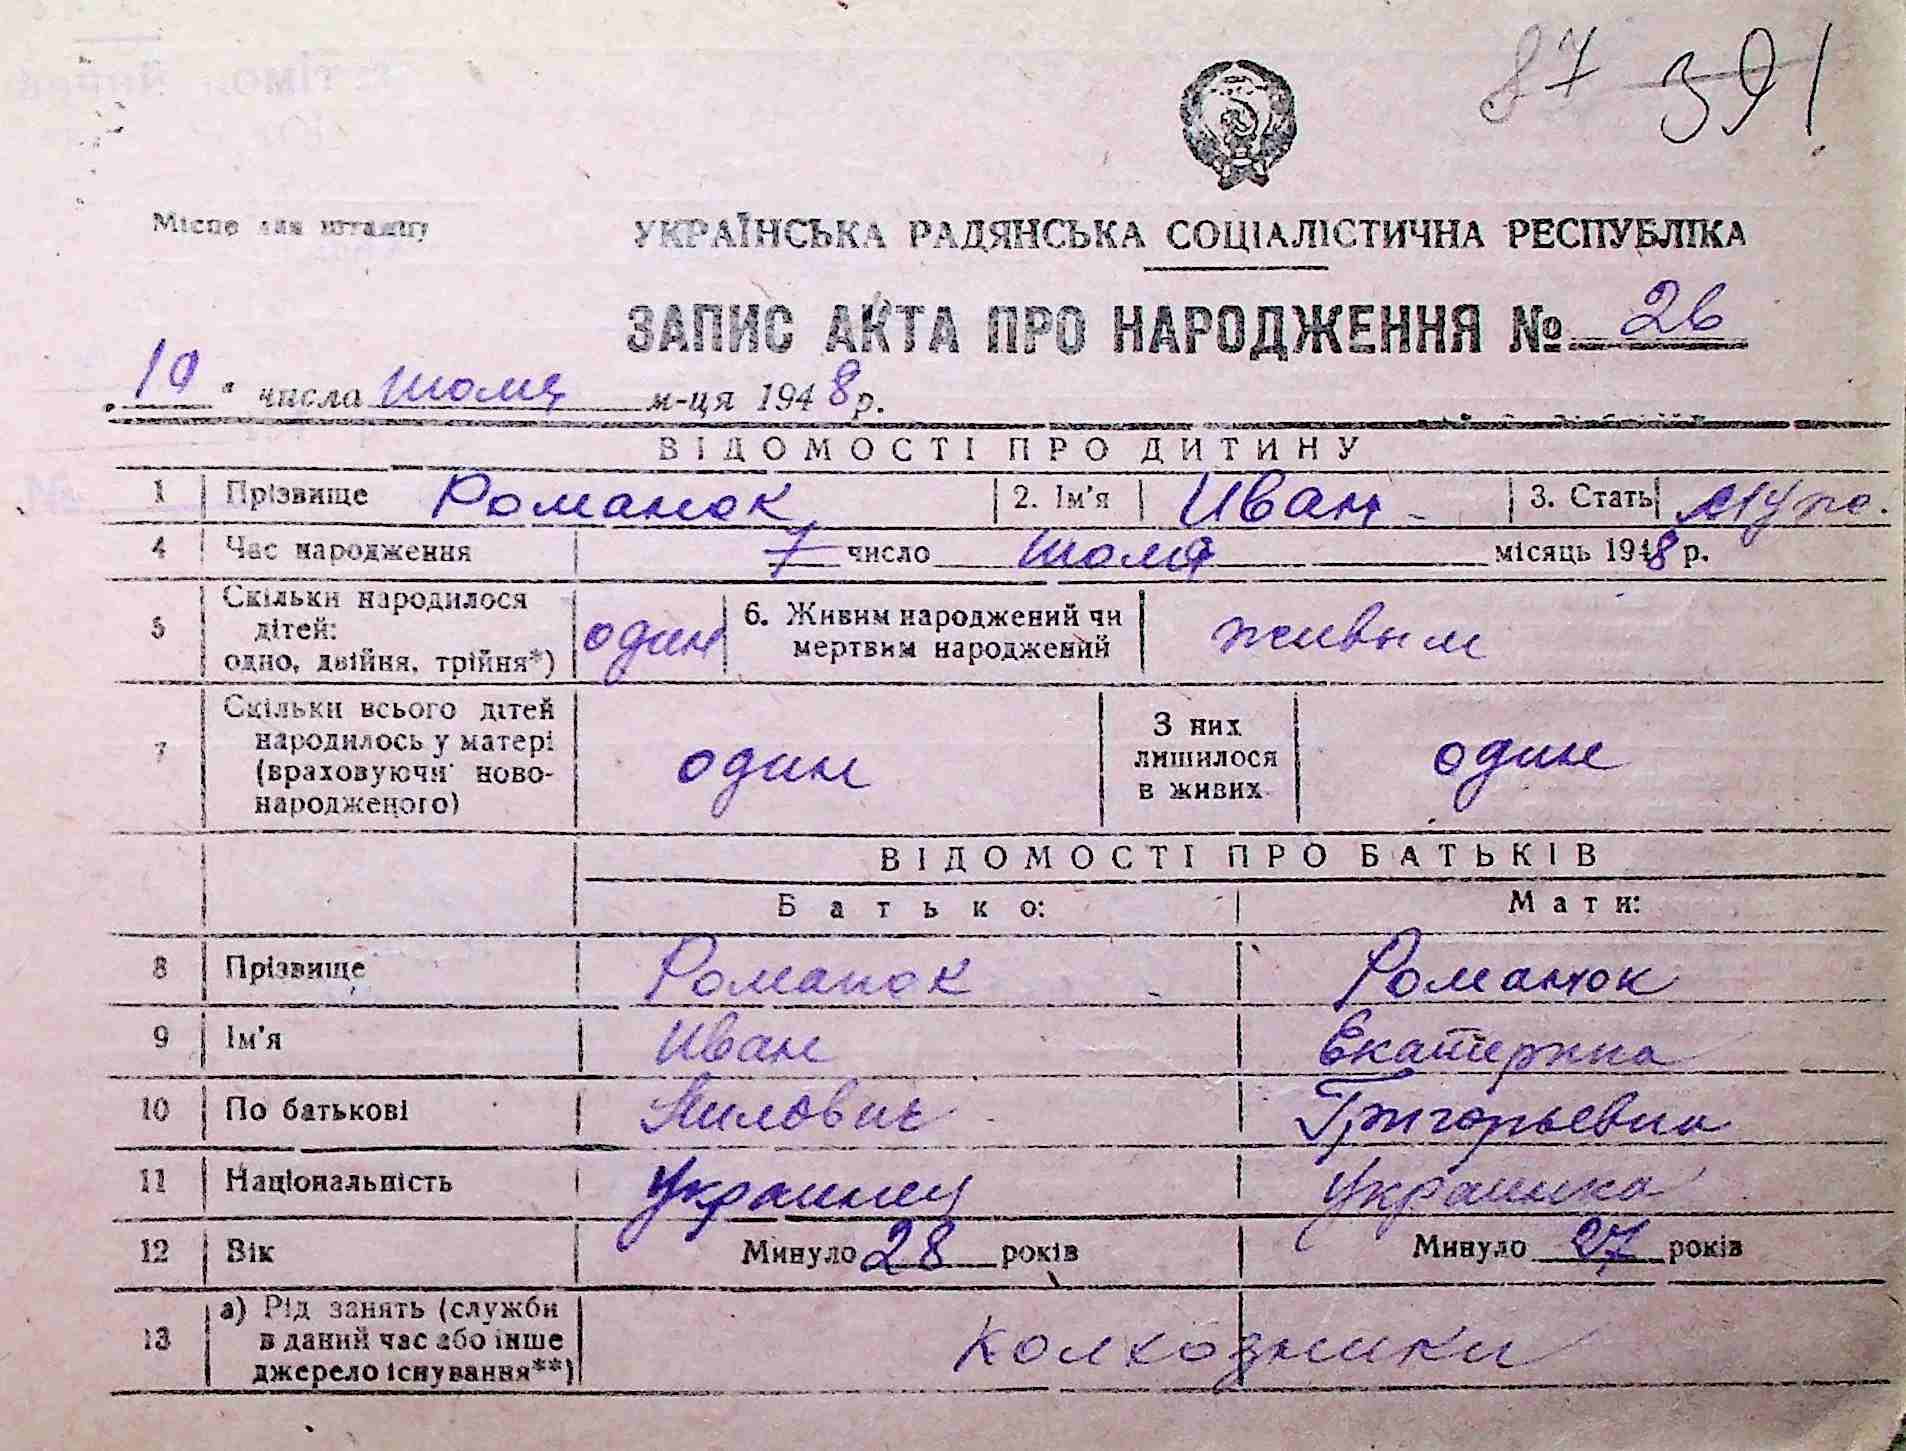 87 391
Місце для штампу
УКРАЇНСЬКА РАДЯНСЬКА СОЦІАЛІСТИЧНА РЕСПУБЛІКА
ЗАПИС АКТА ПРО НАРОДЖЕННЯ № 26
„19“ числа июля м-ця 1948 р.
ВІДОМОСТІ ПРО ДИТИНУ
1 Прізвище Романюк 2. Ім'я Иван 3. Стать муж.
4 Час народження 7 число июля місяць 1948 р.
5 Скільки народилося
дітей:
одно, двійня, трійня*) один 6. Живим народжений чи
мертвим народжений живым
7 Скільки всього дітей
народилось у матері
(враховуючи ново-
народженого) один З них
лишилося
в живих один
ВІДОМОСТІ ПРО БАТЬКІВ
Батько: Мати:
8 Прізвище Романюк Романюк
9 Ім'я Иван Екатерина
10 По батькові Григорьевна
11 Національність Украинец Украинка
12 Вік Минуло 28 років Минуло 27 років
13 а) Рід занять (служби
в даний час або інше
джерело існування**) колхозники